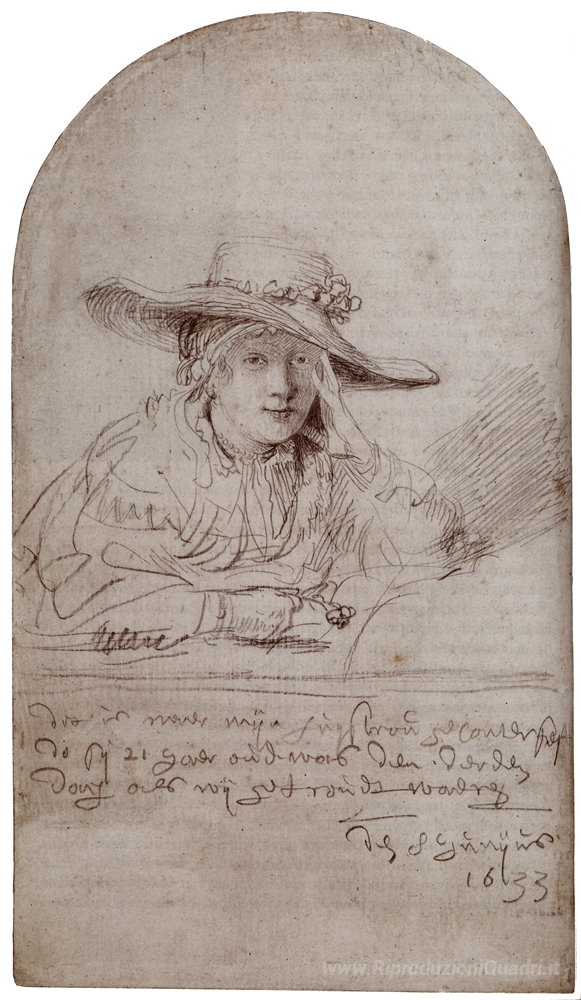 dit is naer mijn huysvrou geconterfeyt
do sij 21 jaer oud was den derden
dach als wij getroudt waeren
den 8 junijus
1633
www.RiproduzioniQuadri.it